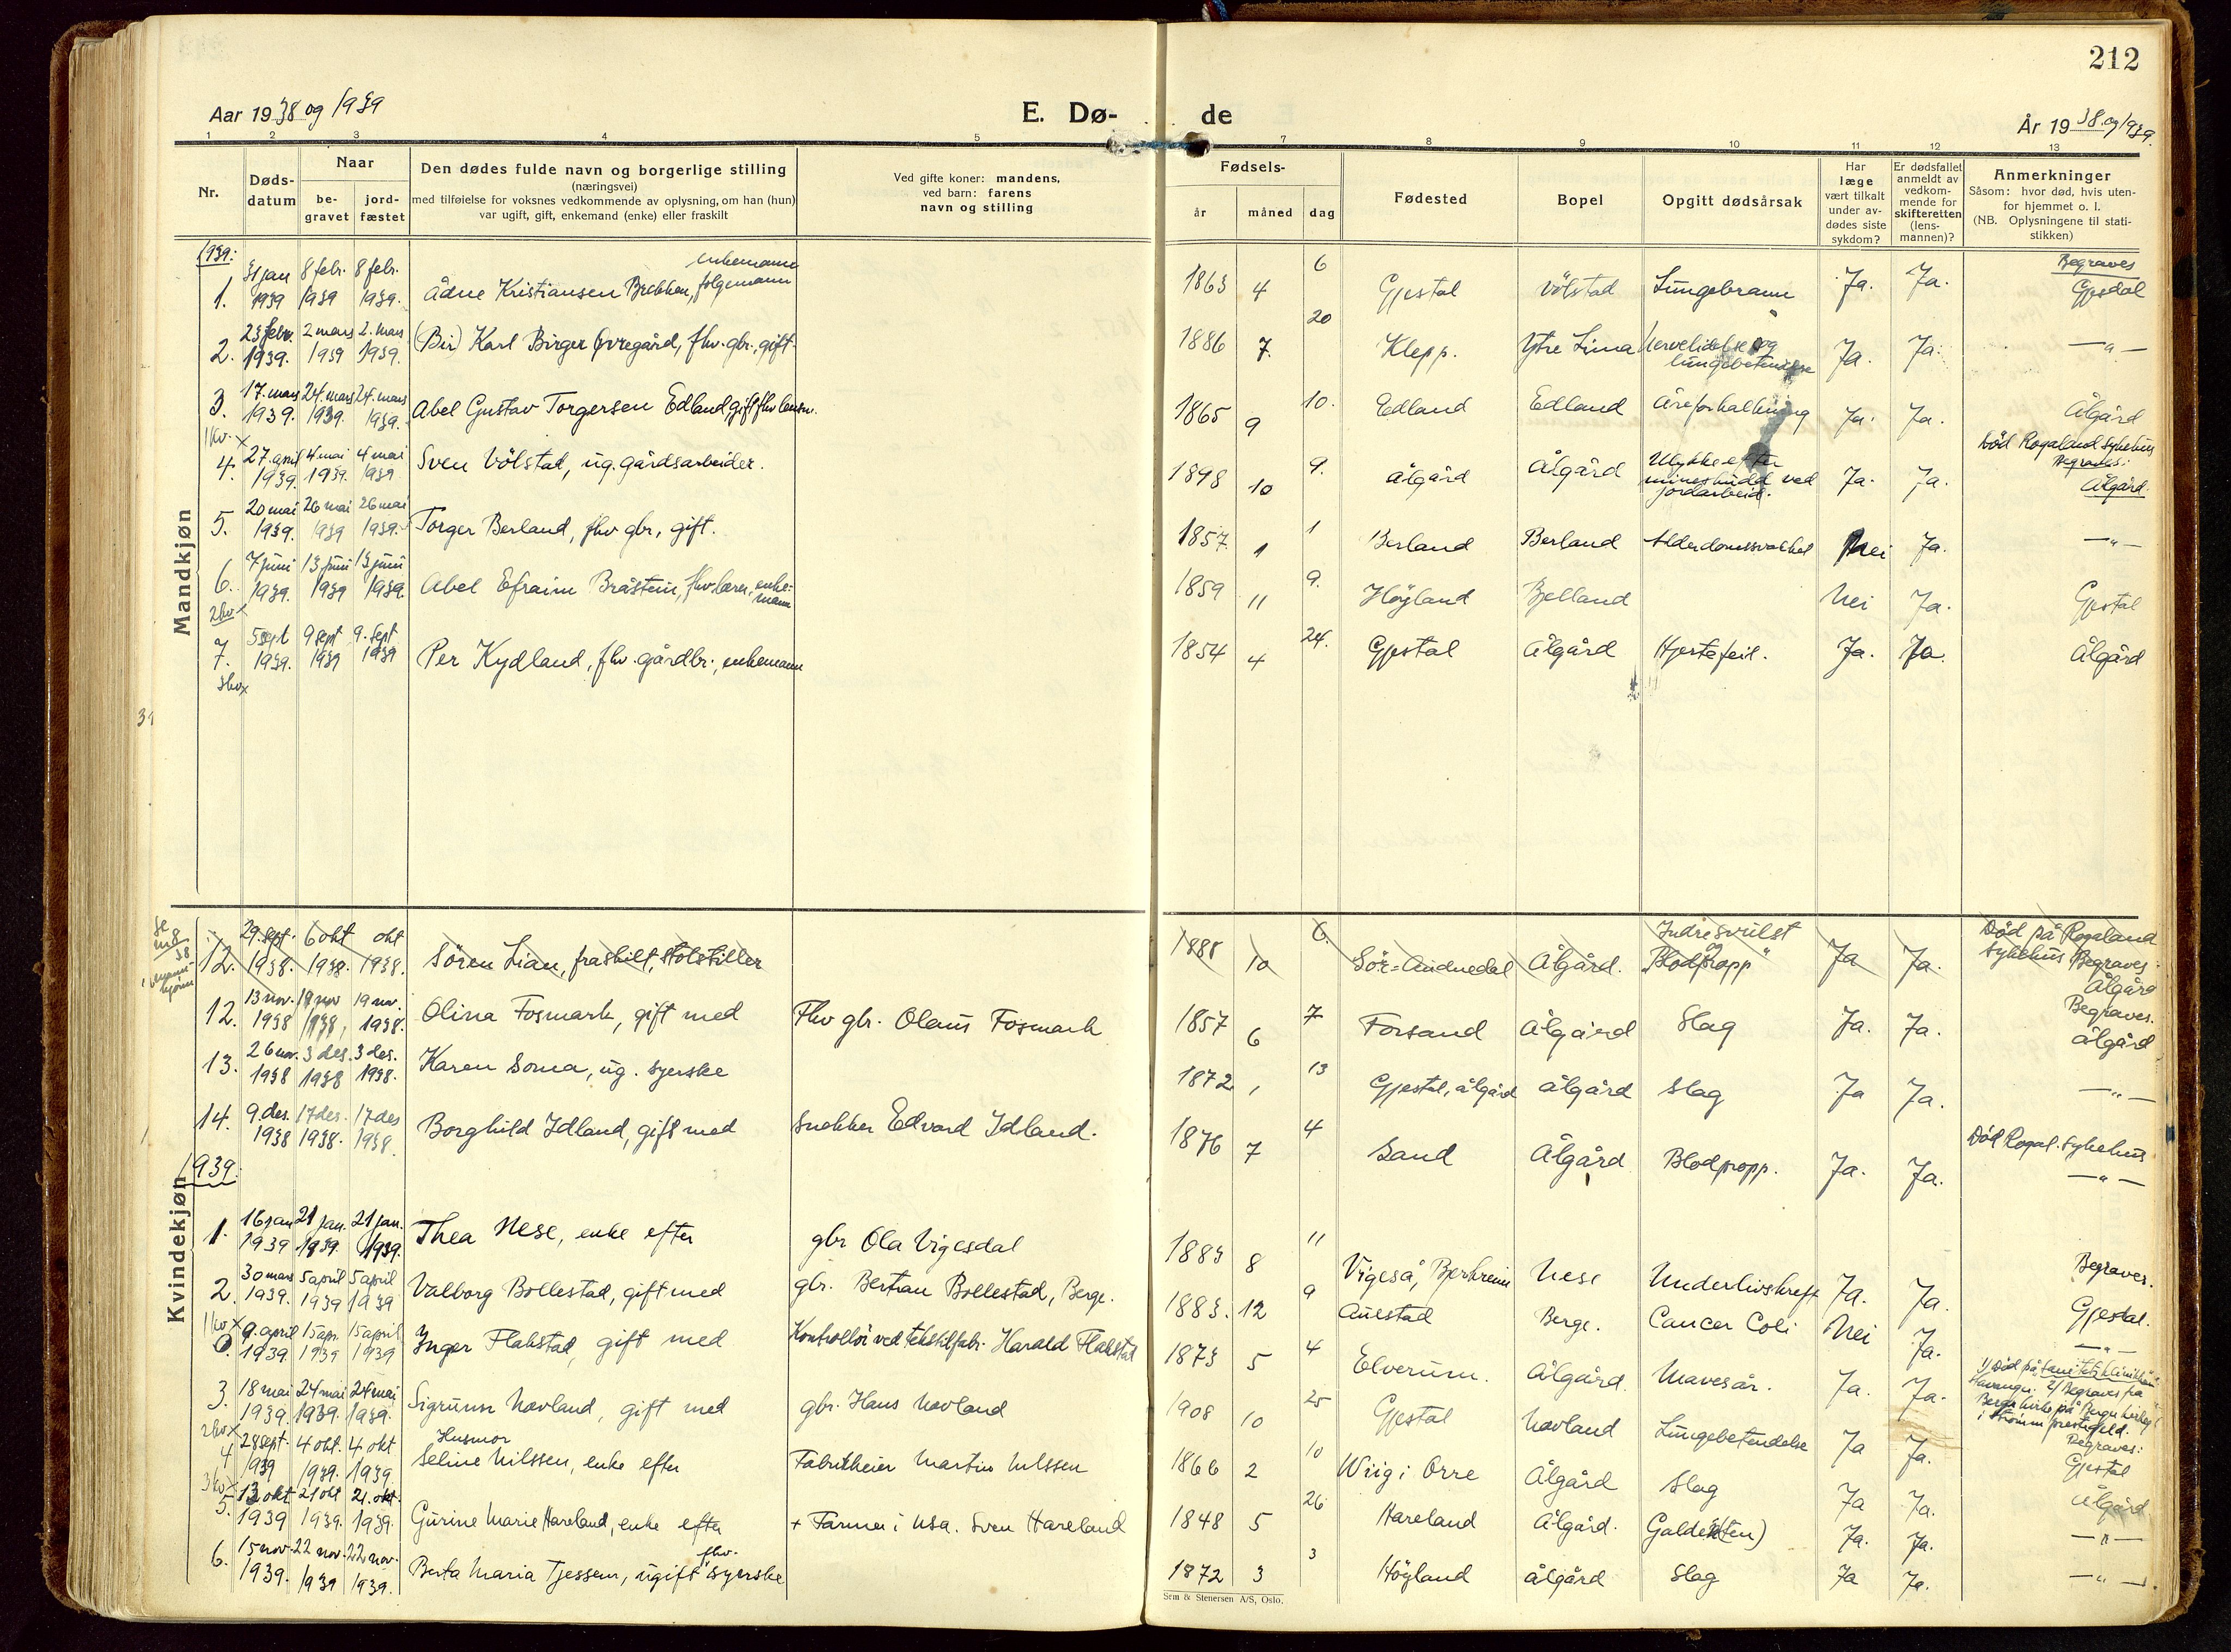 212
Aar 1938 og 1939
E. Dø-
de
År 1938 og 1939.
1 2 3 4 5 7 8 9 10 11 12 13
Nr.
Døds-
datum
Naar
be-
gravet
jord-
fæstet
Den dødes fulde navn og borgerlige stilling
(næringsvei)
med tilføielse for voksnes vedkommende av oplysning, om han (hun)
var ugift, gift, enkemand (enke) eller fraskilt
Ved gifte koner: mandens,
ved barn: farens
navn og stilling
Fødsels-
år
måned
dag
Fødested
Bopel
Opgitt dødsårsak
Har
læge
vært tilkalt
under av-
dødes siste
sykdom?
Er dødsfallet
anmeldt av
vedkom-
mende for
skifteretten
(lens-
mannen)?
Anmerkninger
Såsom: hvor død, hvis uten-
for hjemmet o. l.
(NB. Oplysningene til stati-
stikken)
Mandkjøn
1939:
1. 31 jan 1939 8 febr. 1939 8 febr. 1939. Ådne Kristiansen Brekken, folgemann enkemann 1863 4 6 Gjestal Völstad Lungebrann Ja. Ja. Begraves Gjesdal
2. 23 febr. 1939. 2 mars 1939 2. mars 1939. (Bir) Karl Birger Övregård, fhv. gbr., gift. 1886 7. 20 Klepp. Ytre Lima Nervelidelse og lungebetendelse Ja. Ja. —"—
3. 17. mars 1939. 24. mars 1939. 24. mars 1939. Abel Gustav Torgersen Edland gift fhv lensm. 1865 9 10. Edland Edland Åreforkalkning Ja. Ja. Ålgård
1 kv. x
4. 27. april 1939. 4 mai 1939. 4 mai 1939 Sven Völstad, ug. gårdsarbeider. 1898 10 9. Ålgård Ålgård Ulykke efter mineskudd ved jordarbeid. Ja. Ja. Död Rogaland sykehus Begraves: Ålgård.
5. 20 mai 1939. 26 mai 1939 26 mai 1939. Torger Berland, fhv gbr, gift. 1857. 1 1 Berland Berland Alderdomssvakhet Nei Ja. —"—
6. 7 juni 1939. 13 juni 1939 13 juni 1939. Abel Efraim Bråstein, fhv. lærer, enke-mann 1859 11 9. Höyland Bjelland Nei Ja. Gjestal
2 kv x
7. 5 sept 1939. 9 sept 1939 9. sept 1939 Per Kydland, fhv. gårdbr., enkemann 1854 4 24. Gjestal Ålgård Hjertefeil. Ja. Ja. Ålgård
3 kv x
Kvindekjøn
12. 29. sept. 1938. 6 okt 1938. okt 1938. Sören Lian, fraskilt, stolstiller 1888 10 6. Sör-Audnedal Ålgård. Indresvulst "Blodpropp" Ja Ja. Död på Rogaland sykehus Begraves: Ålgård
12. 13 nov. 1938 19 nov 1938, 19 nov. 1938. Olina Fosmark, gift med Fhv gbr. Olaus Fosmark 1857 6 7 Forsand Ålgård Slag Ja. Ja. Begraves. Ålgård
13. 26 nov. 1938 3 des. 1938 3 des. 1938. Karen Soma, ug. syerske 1872 1 13 Gjestal, ålgård ålgård Slag Ja Ja. —"—
14. 9. des. 1938 17 des. 1938. 17 des 1938. Borghild Idland, gift med Snekker Edvard Idland. 1876 7 4 Sand Ålgård Blodpropp. Ja. Ja. Död Rogal. sykehus —"—
1939:
1. 16 jan 1939 21 jan. 1939. 21 jan. 1939. Thea Nese, enke efter gbr Ola Vigesdal 1883 8 11 Vigeså, Bjerkreim Nese Underlivskreft Ja. Ja. Begraves. Gjestal.
2. 30 mars 1939. 5 april 1939 5 april 1939 Valborg Bollestad, gift med gbr. Bertran Bollestad, Berge. 1883. 12 9 Auestad Berge. Cancer Coli Nei Ja. —"—
1 kv x
0. 9. april 1939. 15 apr. 1939 15 april 1939 Inger Flakstad, gift med Kontrollör ved tekstilfabr. Harald Flakstad 1873 5 4 Elverum. Ålgård. Mavesår. Ja. Ja. 1) Död på Sanitetsklinikken Stavanger. 2) Begraves fra Berge kirke på Berge kirkeg. i Strömm prestegjeld.
3. 18 mai 1939. 24 mai 1939. 24 mai 1939. Sigrunn Hovland, gift med gbr. Hans Hovland 1908 10 25 Gjestal Hovland Lungebetendelse Ja Ja. Begraves: Gjestal
2 kv x
4 28 sept. 1939 4 okt. 1939. 4 okt 1939. Husmor Seline Nilssen, enke efter Fabrikkeier Martin Nilssen 1866 2 10 Wiig i Orre Ålgård Slag Ja Ja. Ålgård
3 kv x
5. 13 okt 1939 21 okt 1939. 21. okt. 1939. Gurine Marie Hareland, enke efter + Farmer i Usa. Sven Hareland 1848 5 26 Hareland Ålgård. Ja. Ja. —"—
6. 15 nov. 1939. 22 nov. 1939 22 nov. 1939. Berta Maria Tjessem, ugift fhv. syerske 1872 3 3 Höyland ålgård Slag Ja Ja. —"—
Sem & Stenersen A/S, Oslo.